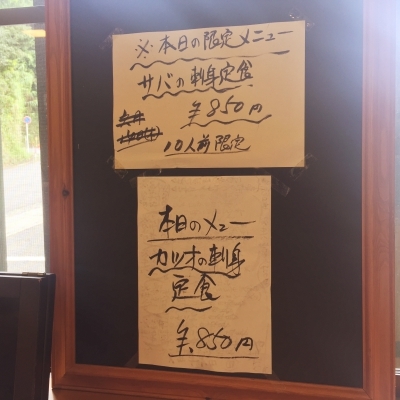 ※本日の限定メニュー
サバの刺身定食
¥850円
10人前限定
本日のメニュー
カツオの刺身
定食
¥850円